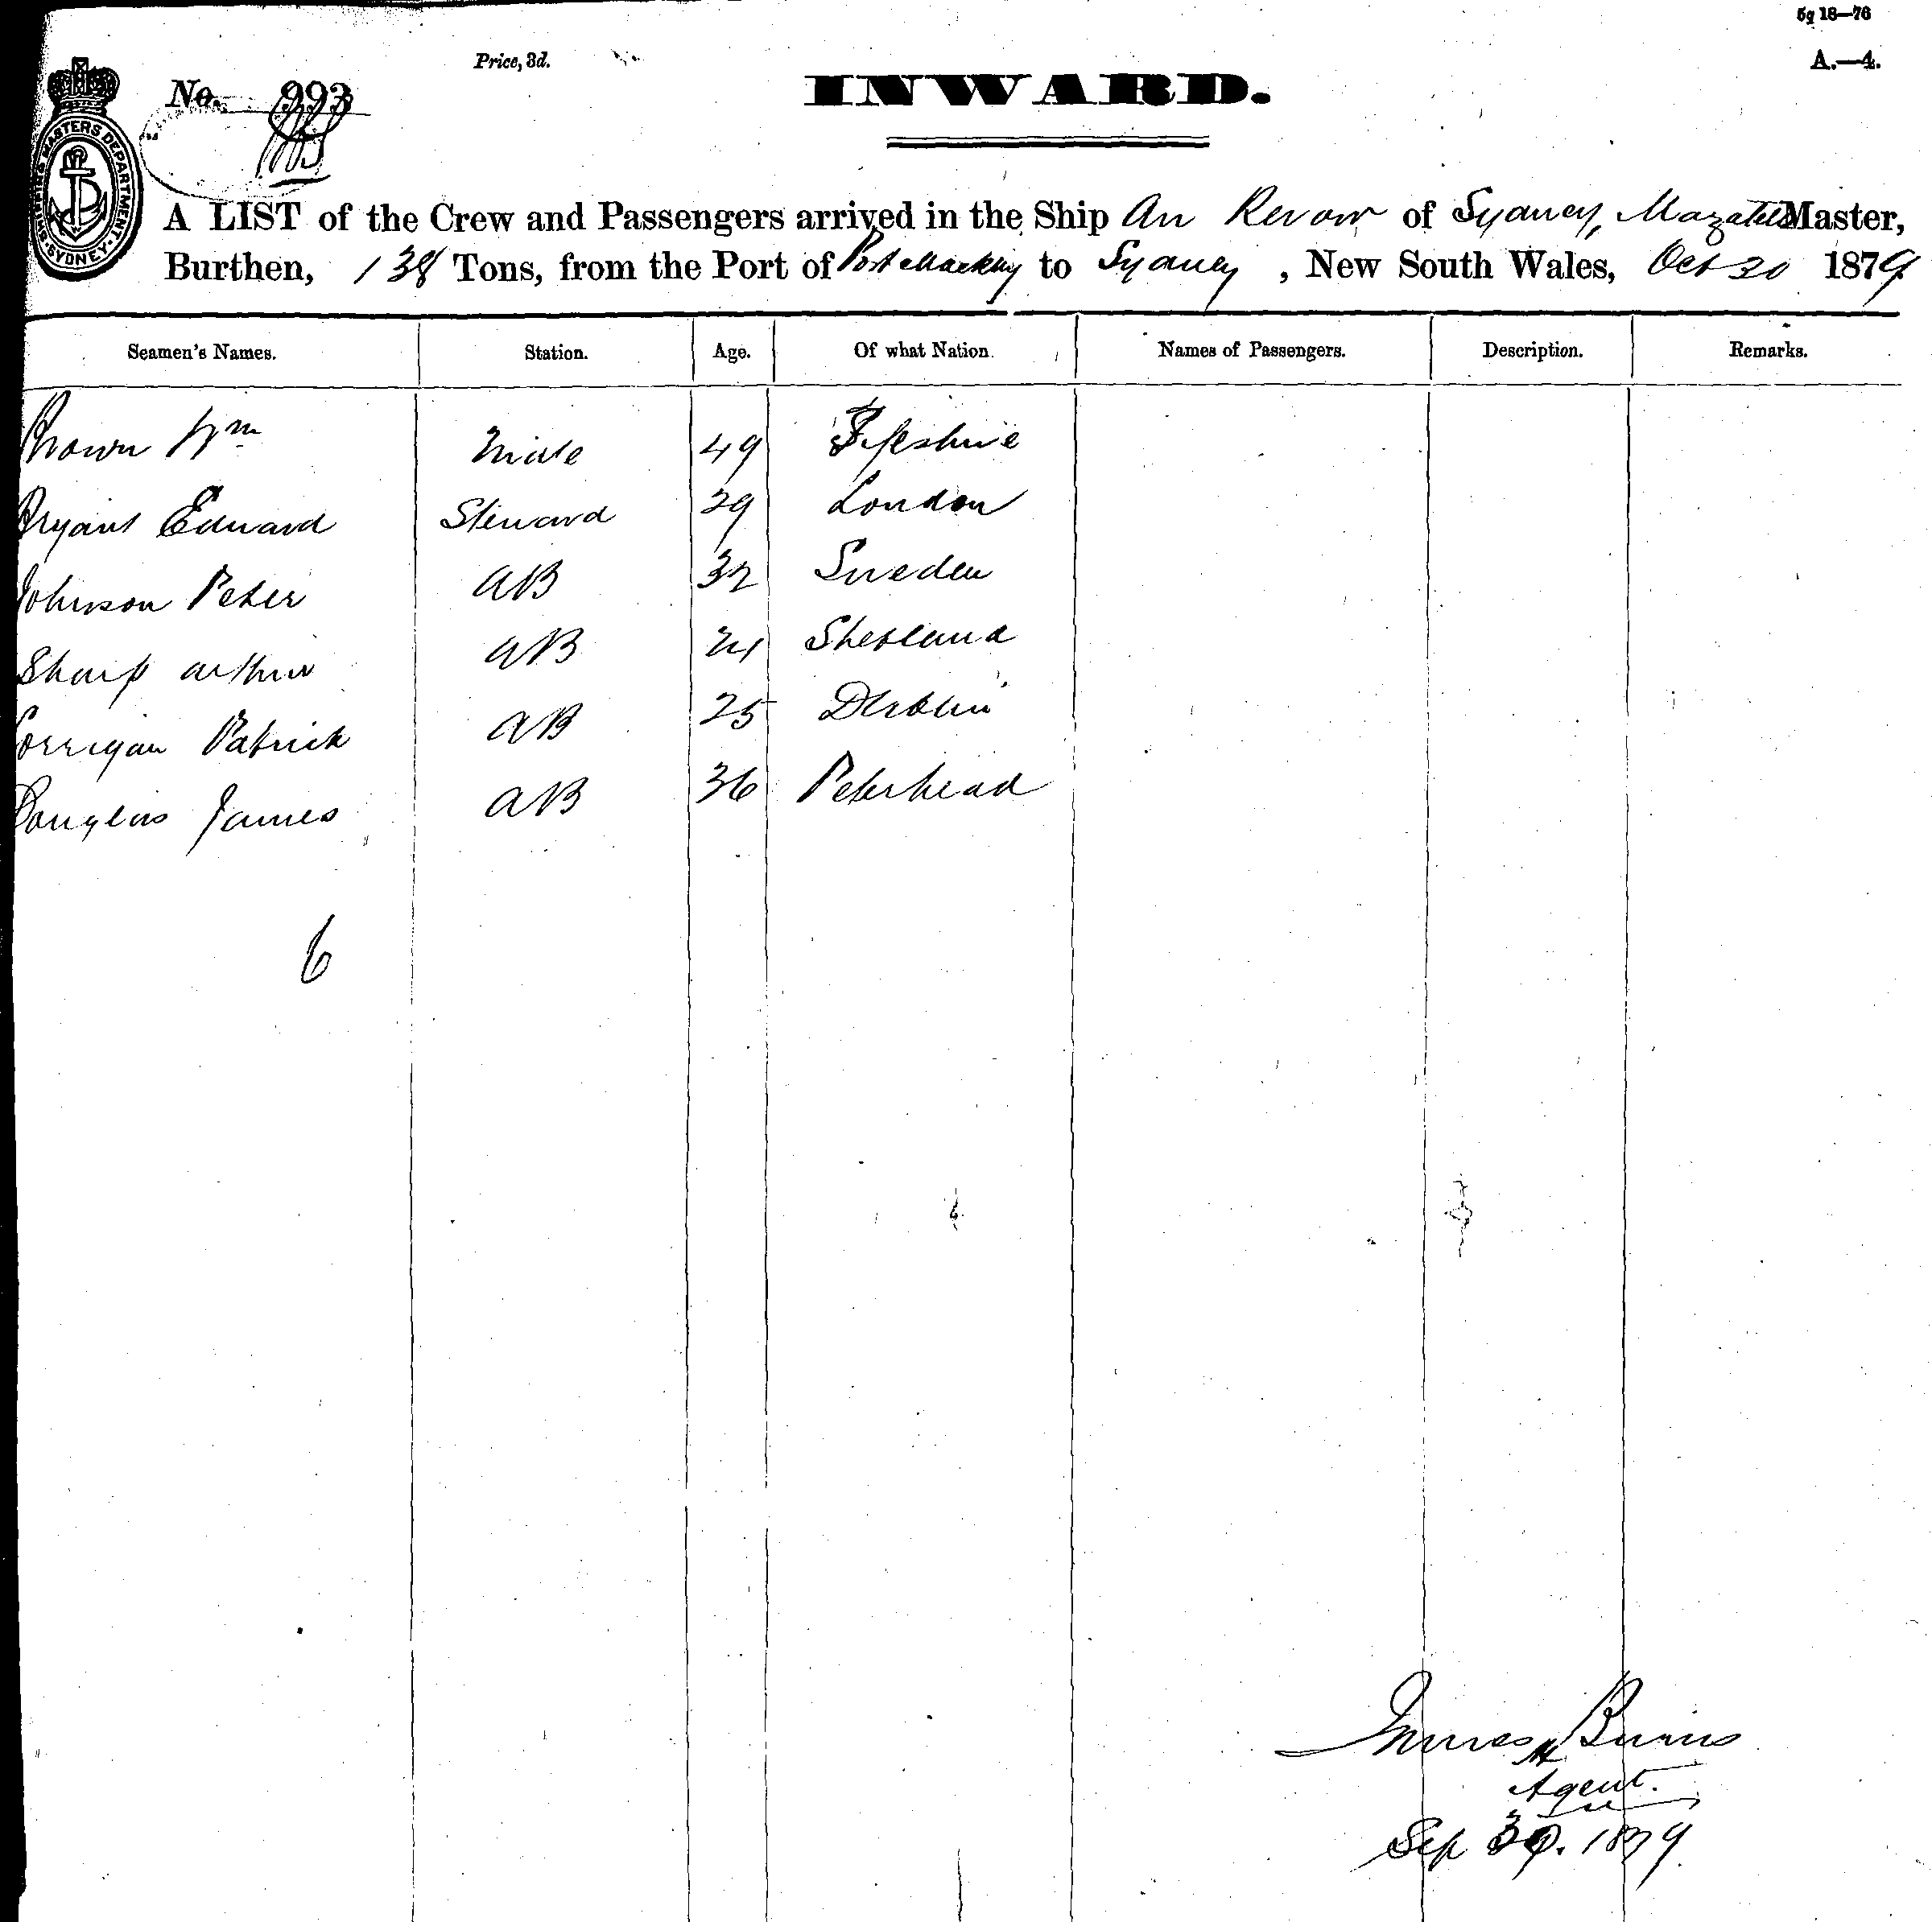 5g 18—76
Price, 3d.
A.—4.
No. 993
INWARD.
SHIPPING MASTERS DEPARTMENT. SYDNEY.
A LIST of the Crew and Passengers arrived in the Ship Au Revoir of Sydney, Master,
Burthen, 138 Tons, from the Port of Port Mackay to Sydney, New South Wales, Oct 30 1879
Seamen's Names. Station. Age. Of what Nation. Names of Passengers. Description. Remarks.
Brown Wm Mate 49 Fifeshire
Bryant Edward Steward 29 London
Johnson Peter AB 32 Sweden
Sharp Arthur AB 21 Shetland
Corrigan Patrick AB 25 Dublin
Douglas James AB 36 Peterhead
6
James Burns
Agent.
Sep 30. 1879